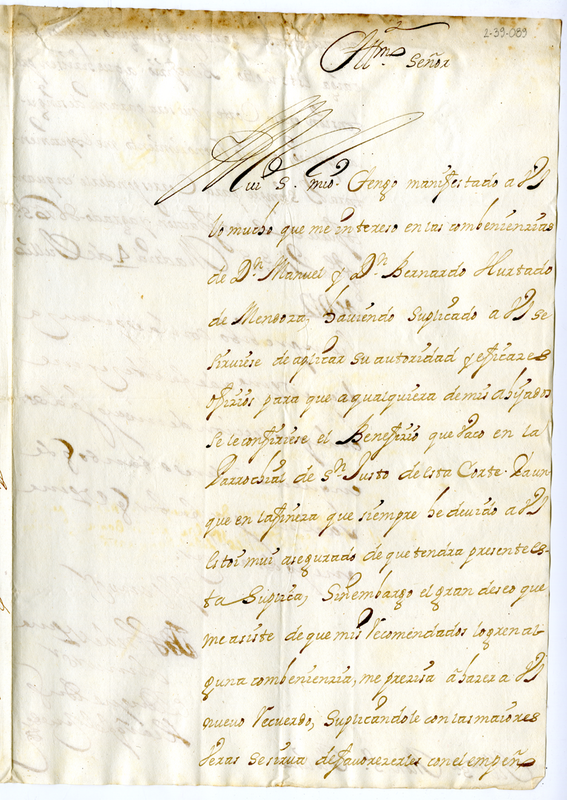 2-39-089
Illmo Señor
Mui S. mio. Tengo manifestado a VI
lo mucho que me intereso en las combenienzias
de Dn. Manuel y Dn. Bernardo Hurtado
de Mendoza, haviendo suplicado a VI se
sirviese de aplicar su autoridad y eficazes
ofizios para que a qualquiera de mis ahijados
se le confiriese el Benefizio que vaco en la
Parrochial de Sn. Justo de esta Corte. Y aun
que en la fineza que siempre he devido a VI
estoi mui asegurado de que tendra presente es-
ta suplica, sin embargo el gran deseo que
me asiste de que mis recomendados logren al-
guna combenienzia, me preziza a hazer a VI
nuevo recuerdo, suplicandole con las maiores
veras se sirva de favorezerles con el empeño